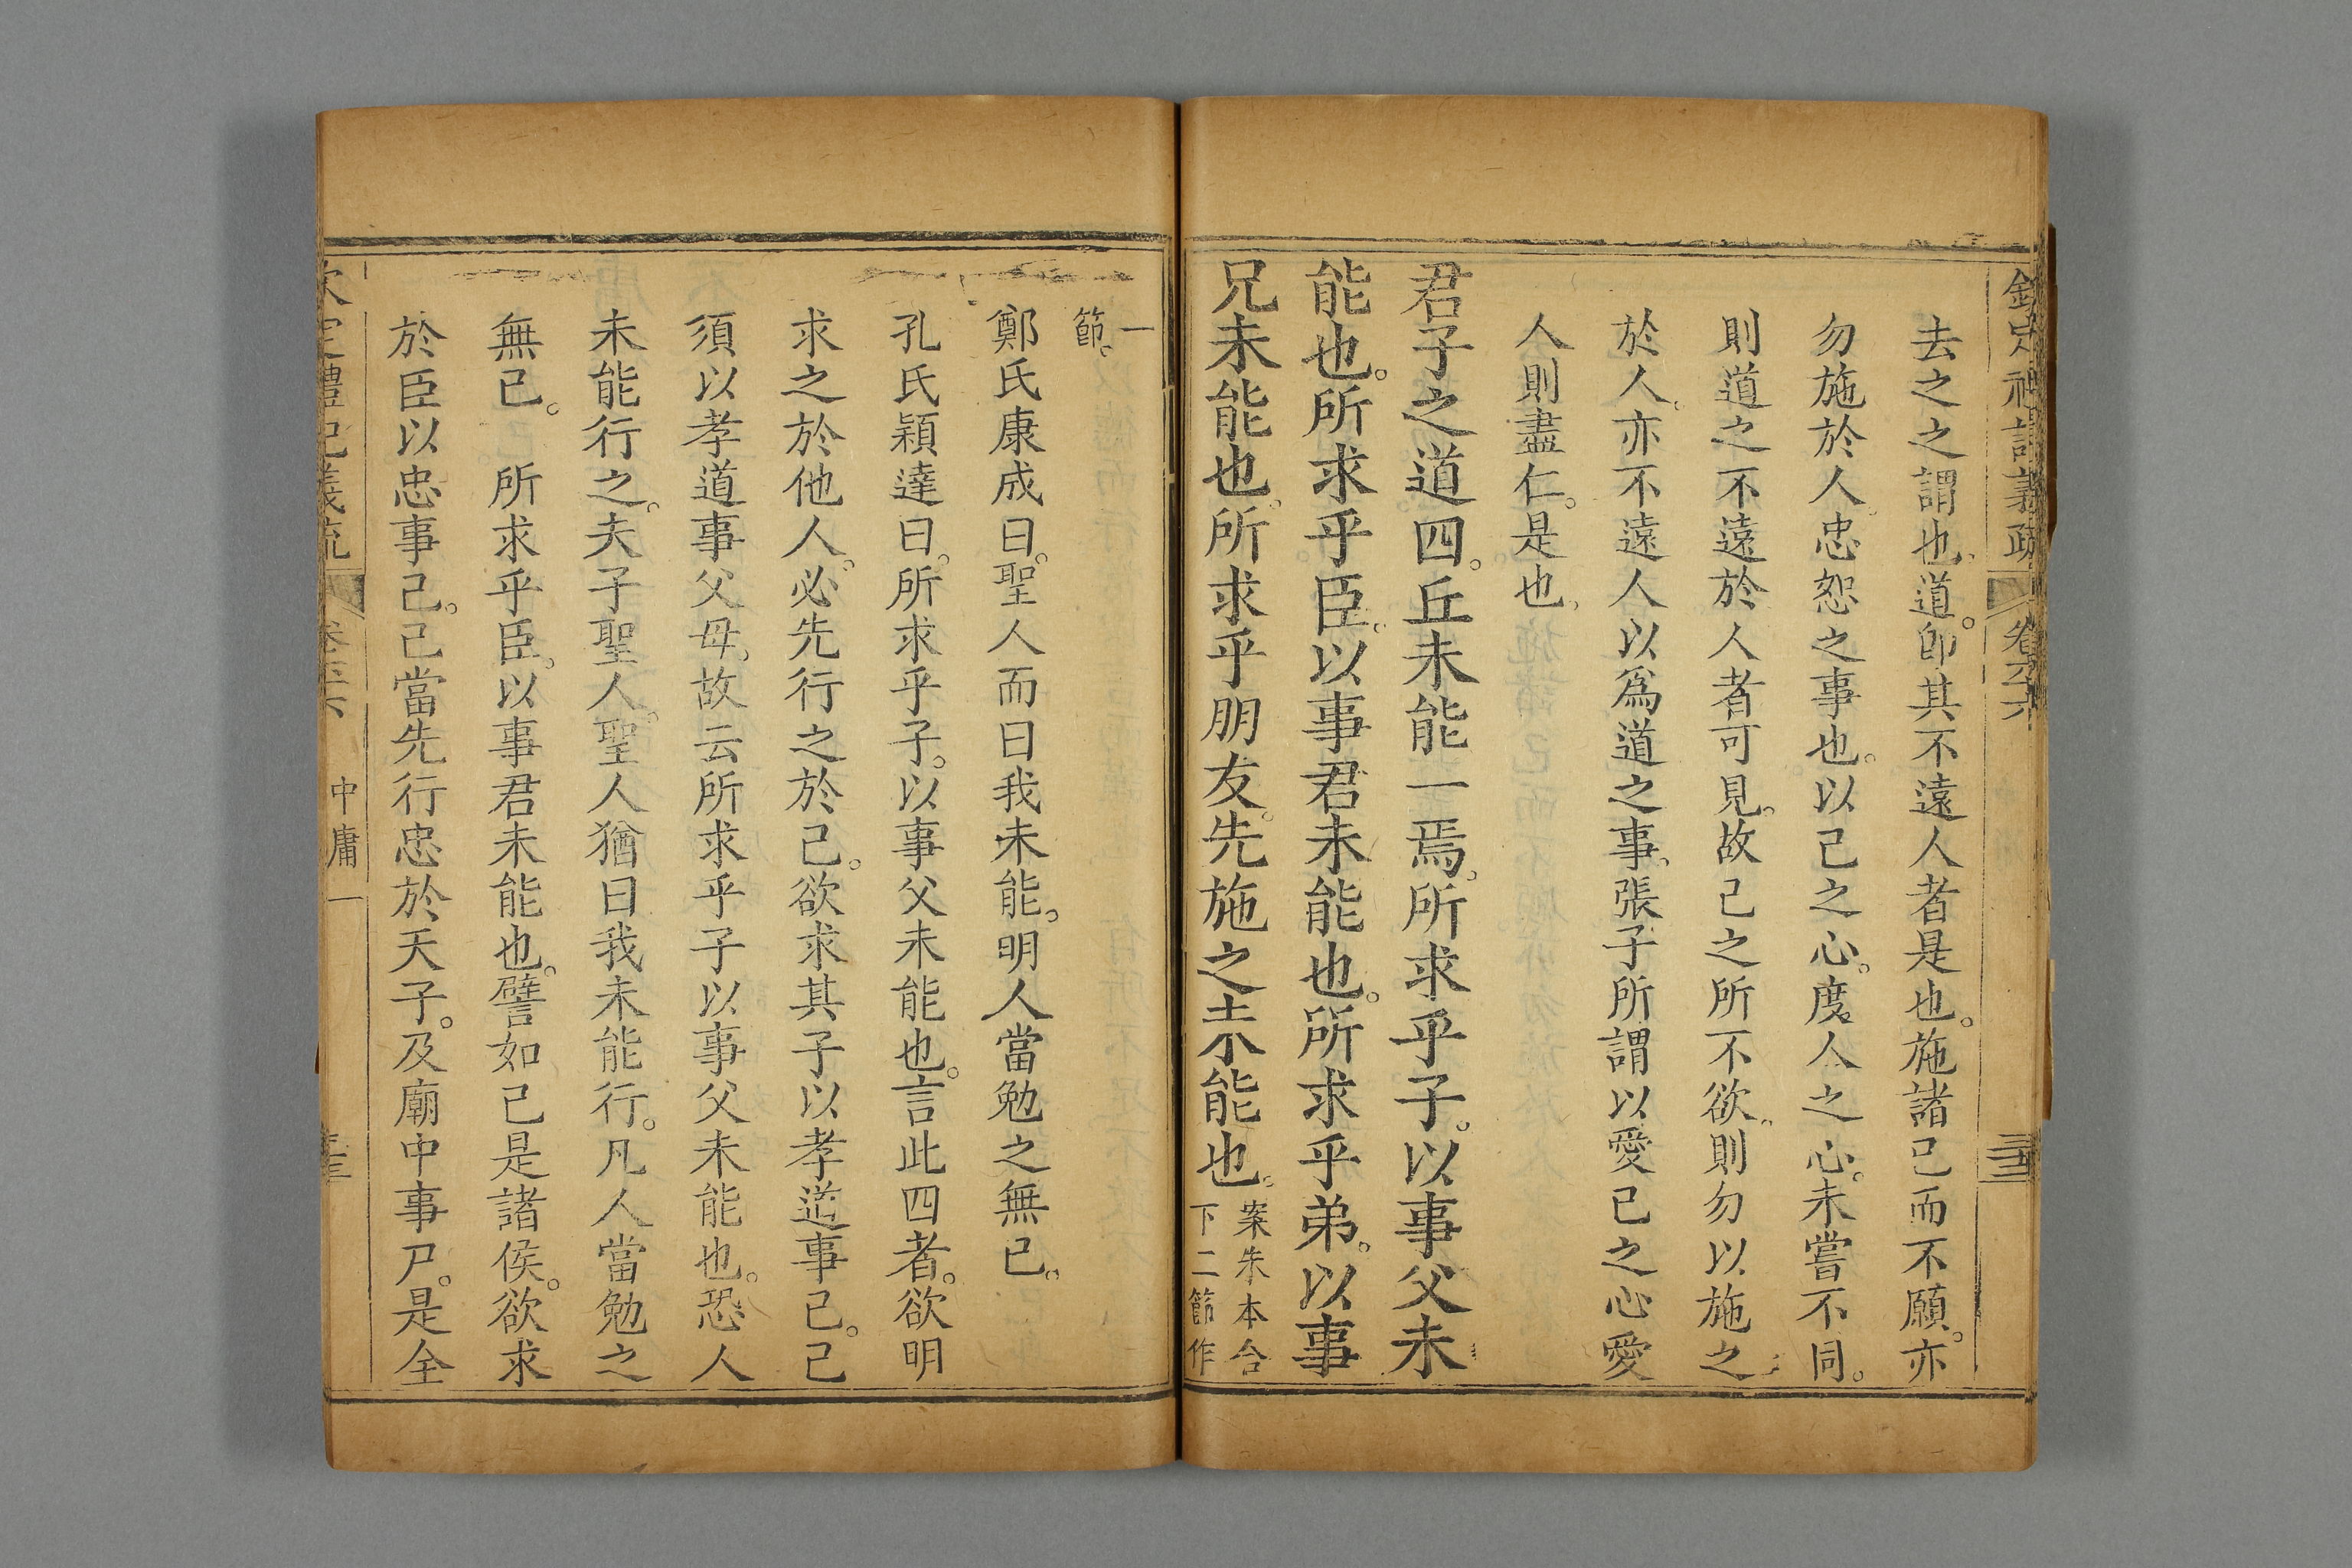 欽定禮記義疏 卷六十六
去之之謂也道。卽其不遠人者是也。施諸己而不願。亦
勿施於人。忠恕之事也。以己之心。度人之心。未嘗不同。
則道之不遠於人者可見。故己之所不欲。則勿以施之
於人。亦不遠人以爲道之事。張子所謂以愛己之心愛
人則盡仁。是也。
君子之道四。丘未能一焉。所求乎子。以事父未
能也。所求乎臣。以事君未能也。所求乎弟。以事
兄未能也。所求乎朋友。先施之未能也。
案朱本合
下二節作
一
節。
鄭氏康成曰。聖人而曰我未能。明人當勉之無已。
孔氏穎達曰。所求乎子。以事父未能也。言此四者。欲明
求之於他人。必先行之於己。欲求其子以孝道事己。己
須以孝道事父母。故云所求乎子以事父未能也。恐人
未能行之。夫子聖人。聖人猶曰我未能行。凡人當勉之
無已。 所求乎臣。以事君未能也。譬如己是諸侯。欲求
於臣以忠事己。己當先行忠於天子。及廟中事尸。是全
欽定禮記義疏 中庸一